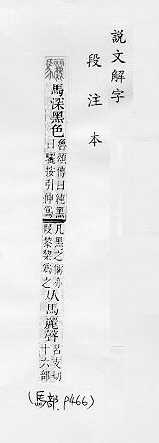 說文解字
段注本
驪 馬深黑色
魯頌傳曰純黑
曰驪按引伸爲
凡黑之偁亦
叚黎棃爲之
从馬麗聲
呂支切
十六部
(馬部.p466)